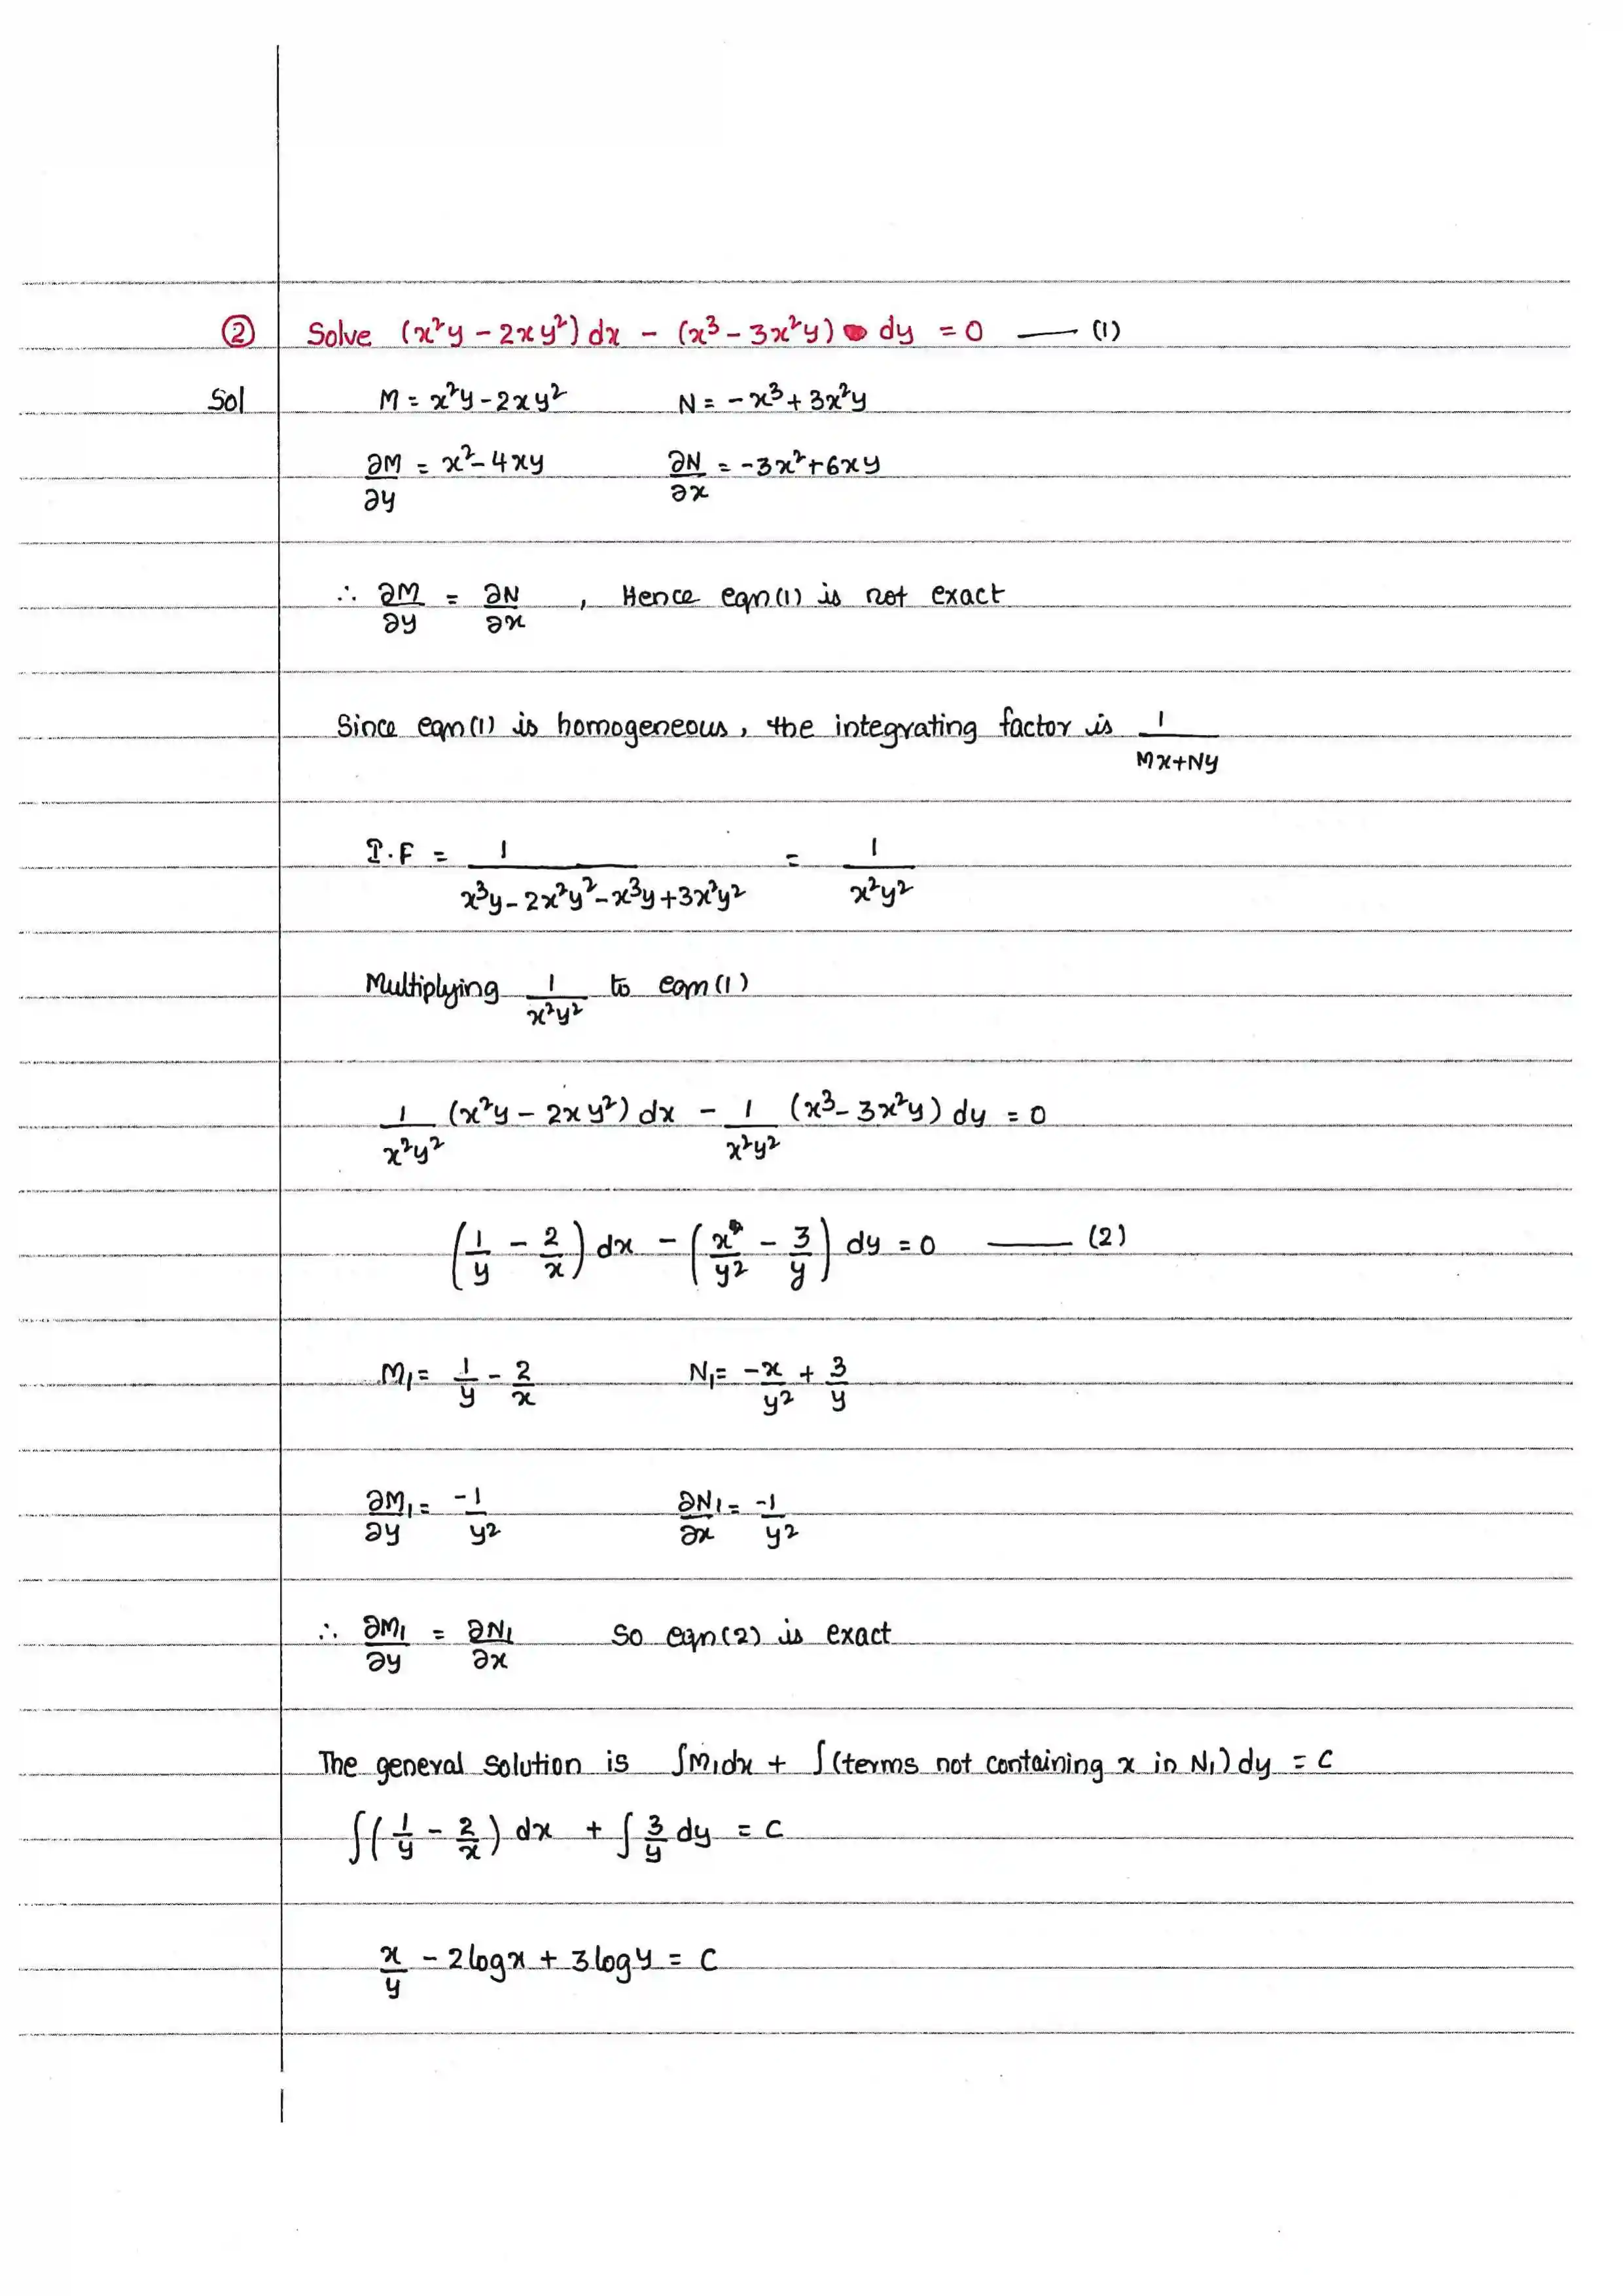 ② Solve (x²y - 2xy²) dx - (x³ - 3x²y) dy = 0 —— (1)
Sol M = x²y - 2xy² N = - x³ + 3x²y
∂M/∂y = x² - 4xy ∂N/∂x = -3x² + 6xy
∴ ∂M/∂y = ∂N/∂x , Hence eqn (1) is not exact
Since eqn (1) is homogeneous, the integrating factor is 1/(Mx+Ny)
I.F = 1/(x³y - 2x²y² - x³y + 3x²y²) = 1/(x²y²)
Multiplying 1/(x²y²) to eqn (1)
1/(x²y²) (x²y - 2xy²) dx - 1/(x²y²) (x³ - 3x²y) dy = 0
(1/y - 2/x) dx - (x/y² - 3/y) dy = 0 —— (2)
M₁ = 1/y - 2/x N₁ = -x/y² + 3/y
∂M₁/∂y = -1/y² ∂N₁/∂x = -1/y²
∴ ∂M₁/∂y = ∂N₁/∂x So eqn (2) is exact
The general solution is ∫M₁dx + ∫(terms not containing x in N₁) dy = C
∫(1/y - 2/x) dx + ∫ 3/y dy = C
x/y - 2logx + 3logy = C